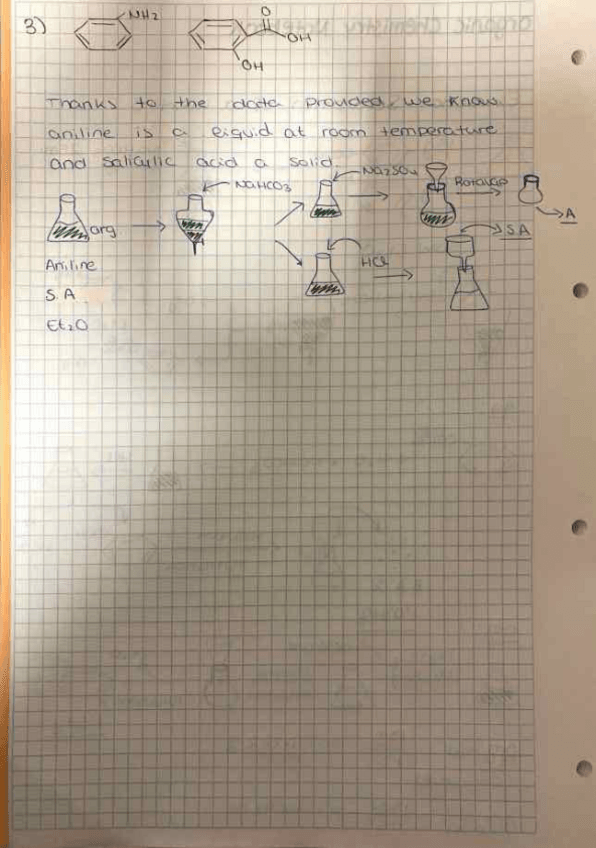 3)
NH2
O
OH
OH
Thanks to the data provided, we know
aniline is a liquid at room temperature
and Salicylic acid a solid.
NaHCO3
Na2SO4
Rotavap
A
org
HCl
S.A
Aniline
S.A
Et2O